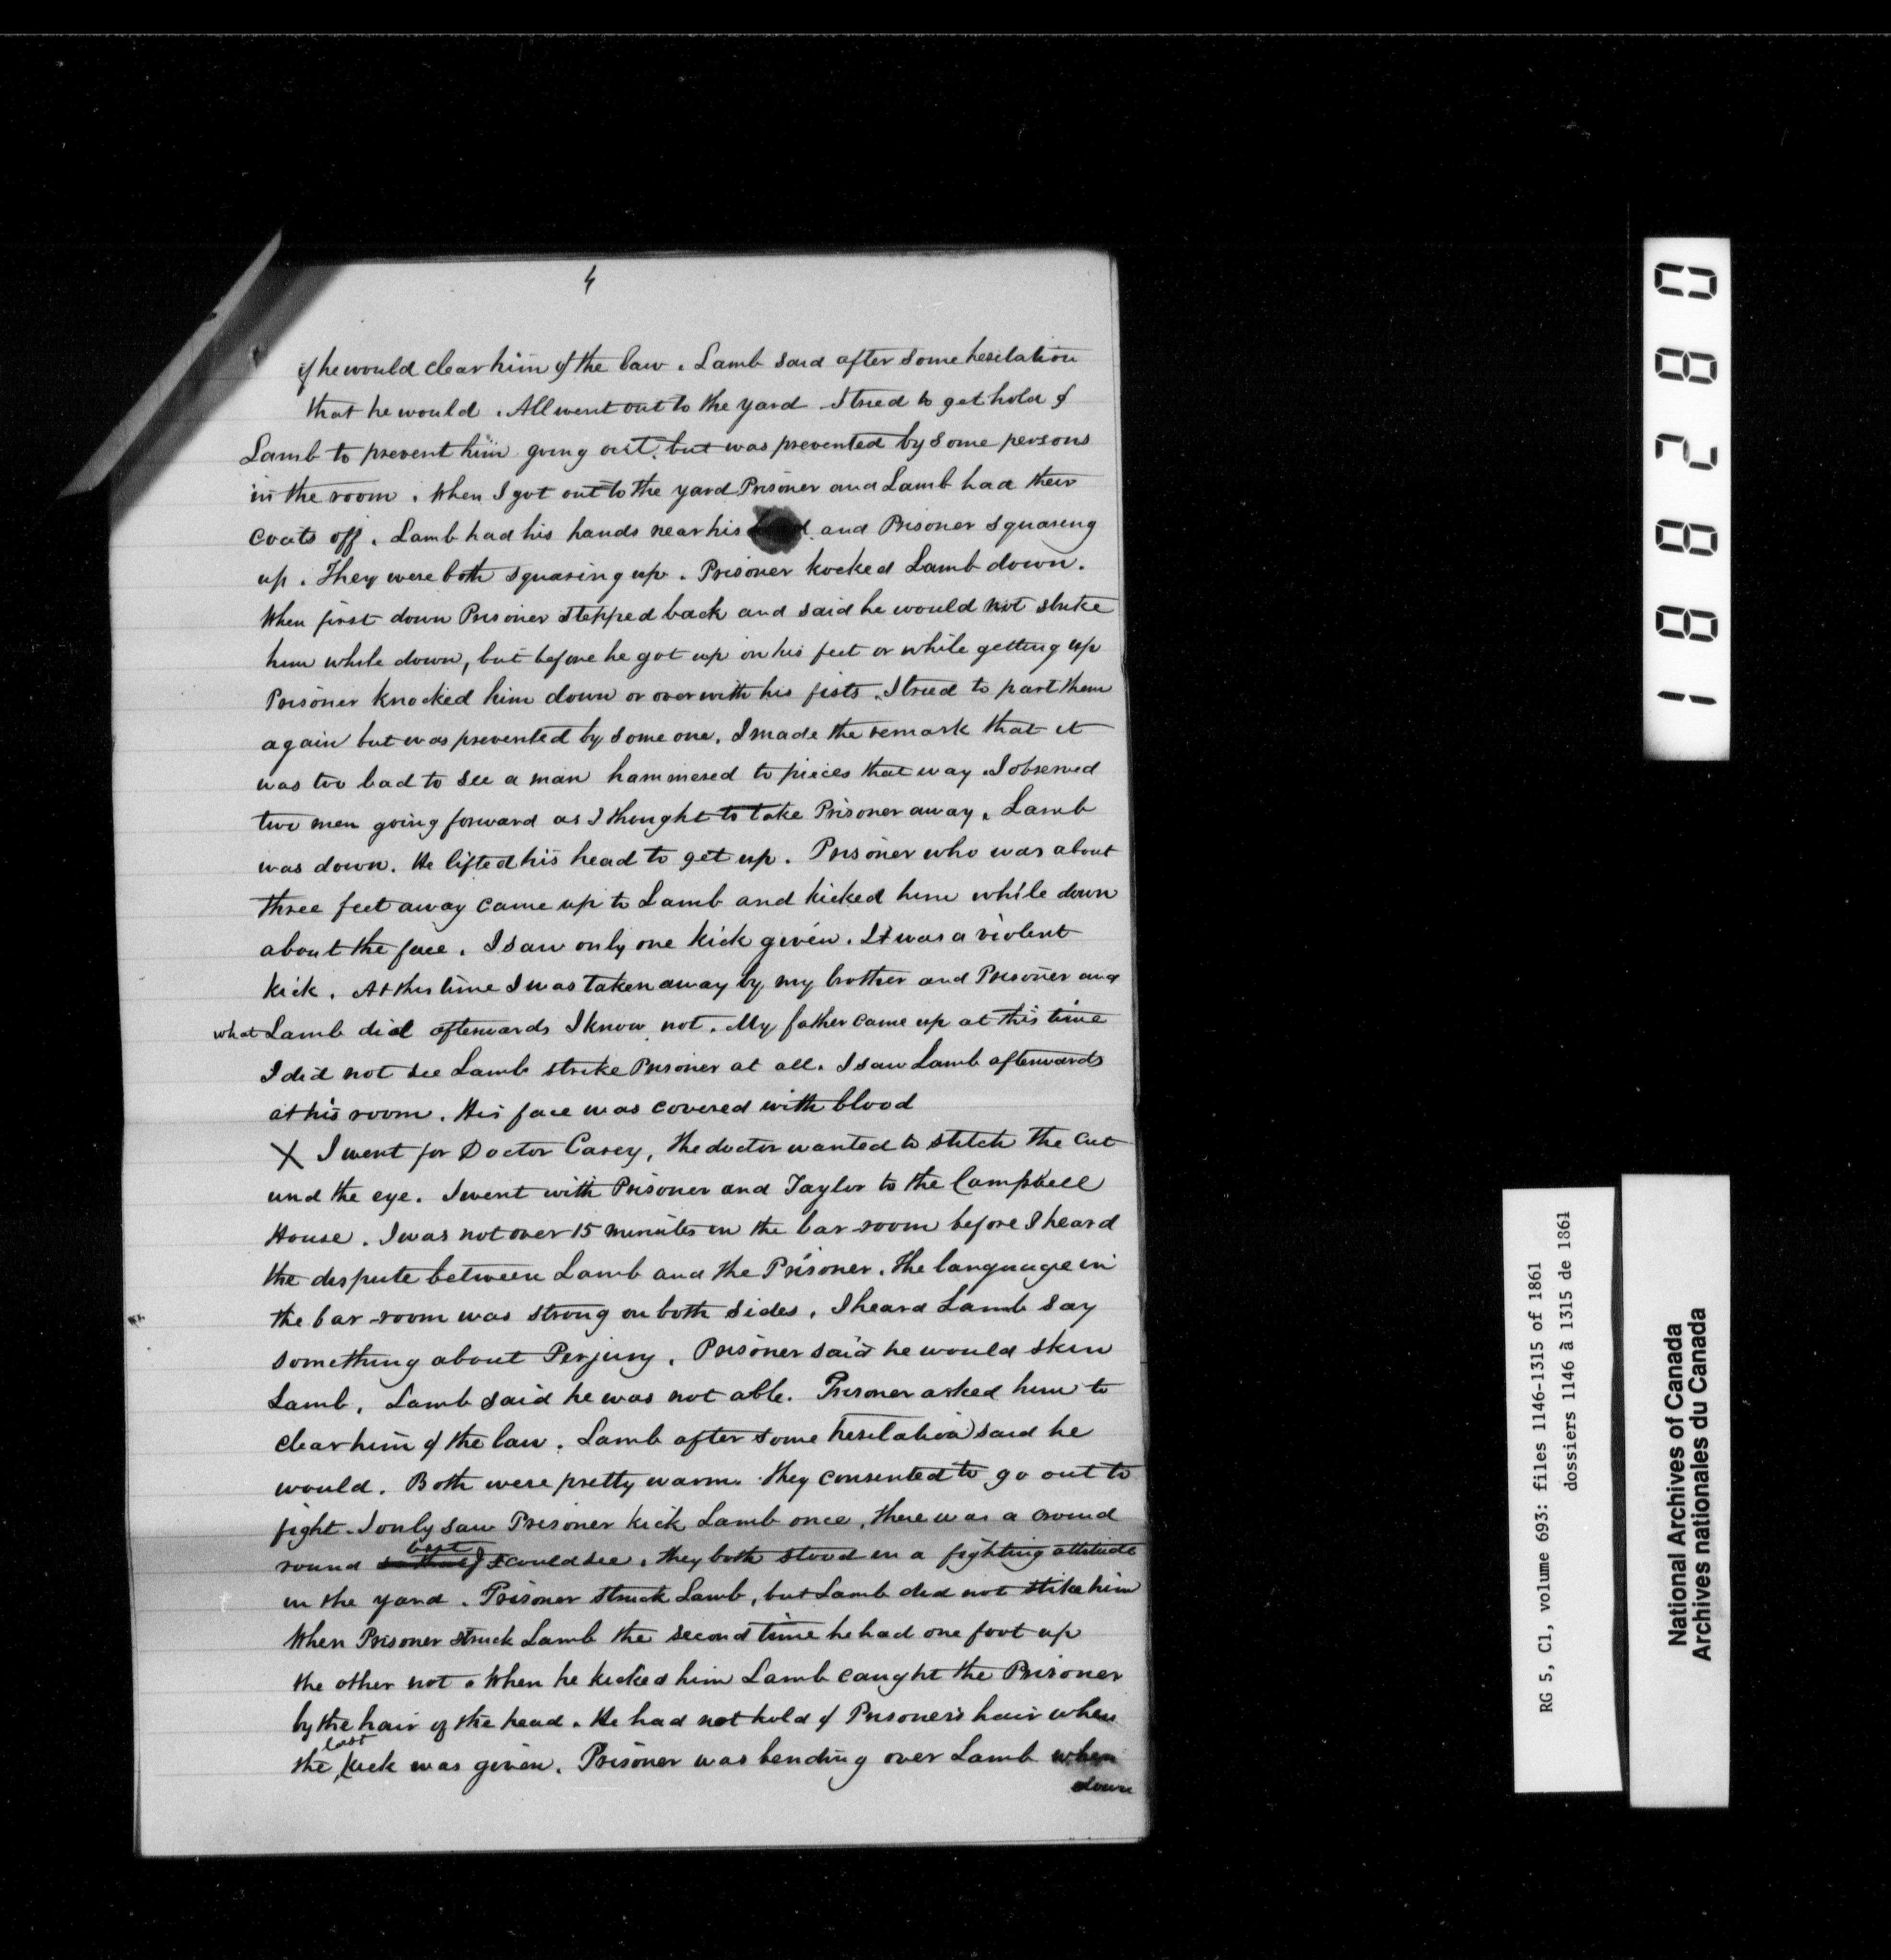 4
if he would clear him of the law. Lamb said after some hesitation
that he would. All went out to the yard I tried to get hold of
Lamb to prevent him going out, but was prevented by some persons
in the room. When I got out to the yard Prisoner and Lamb had their
coats off. Lamb had his hands near his and Prisoner squaring
up. They were both squaring up. Prisoner kocked Lamb down.
When first down Prisoner stepped back and said he would not strike
him while down, but before he got up on his feet or while getting up
Prisoner knocked him down or over with his fists. I tried to part them
again but was prevented by some one. I made the remark that it
was too bad to see a man hammered to pieces that way. I observed
two men going forward as I thought to take Prisoner away. Lamb
was down. He lifted his head to get up. Prisoner who was about
three feet away came up to Lamb and kicked him while down
about the face. I saw only one kick given. It was a violent
kick. At this time I was taken away by my brother and Prisoner and
what Lamb did afterwards I know not. My father came up at this time
I did not see Lamb strike Prisoner at all. I saw Lamb afterwards
at his room. His face was covered with blood
X I went for Doctor Casey, the doctor wanted to stitch the cut
und the eye. I went with Prisoner and Taylor to the Campbell
House. I was not over 15 minutes in the bar-room before I heard
the dispute between Lamb and the Prisoner. The language in
the bar-room was strong on both sides. I heard Lamb say
something about Perjury. Prisoner said he would skin
Lamb, Lamb said he was not able. Prisoner asked him to
clear him of the law. Lamb after some hesitation said he
would. Both were pretty warm. they consented to go out to
fight. I only saw Prisoner kick Lamb once, there was a crowd
round but I could see. they both stood in a fighting attitude
in the yard. Prisoner struck Lamb, but Lamb did not stike him
When Prisoner struck Lamb the second time he had one foot up
the other not. When he kicked him Lamb caught the Prisoner
by the hair of the head. He had not hold of Prisoner's hair when
the last kick was given. Prisoner was bending over Lamb when
down
188280
RG 5, C1, volume 693: files 1146-1315 of 1861
dossiers 1146 à 1315 de 1861
National Archives of Canada
Archives nationales du Canada